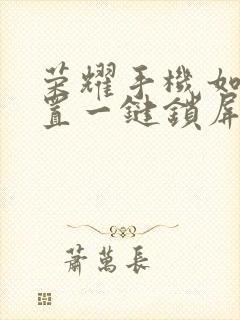 荣耀手機如
置一鍵鎖屏
蕭萬長